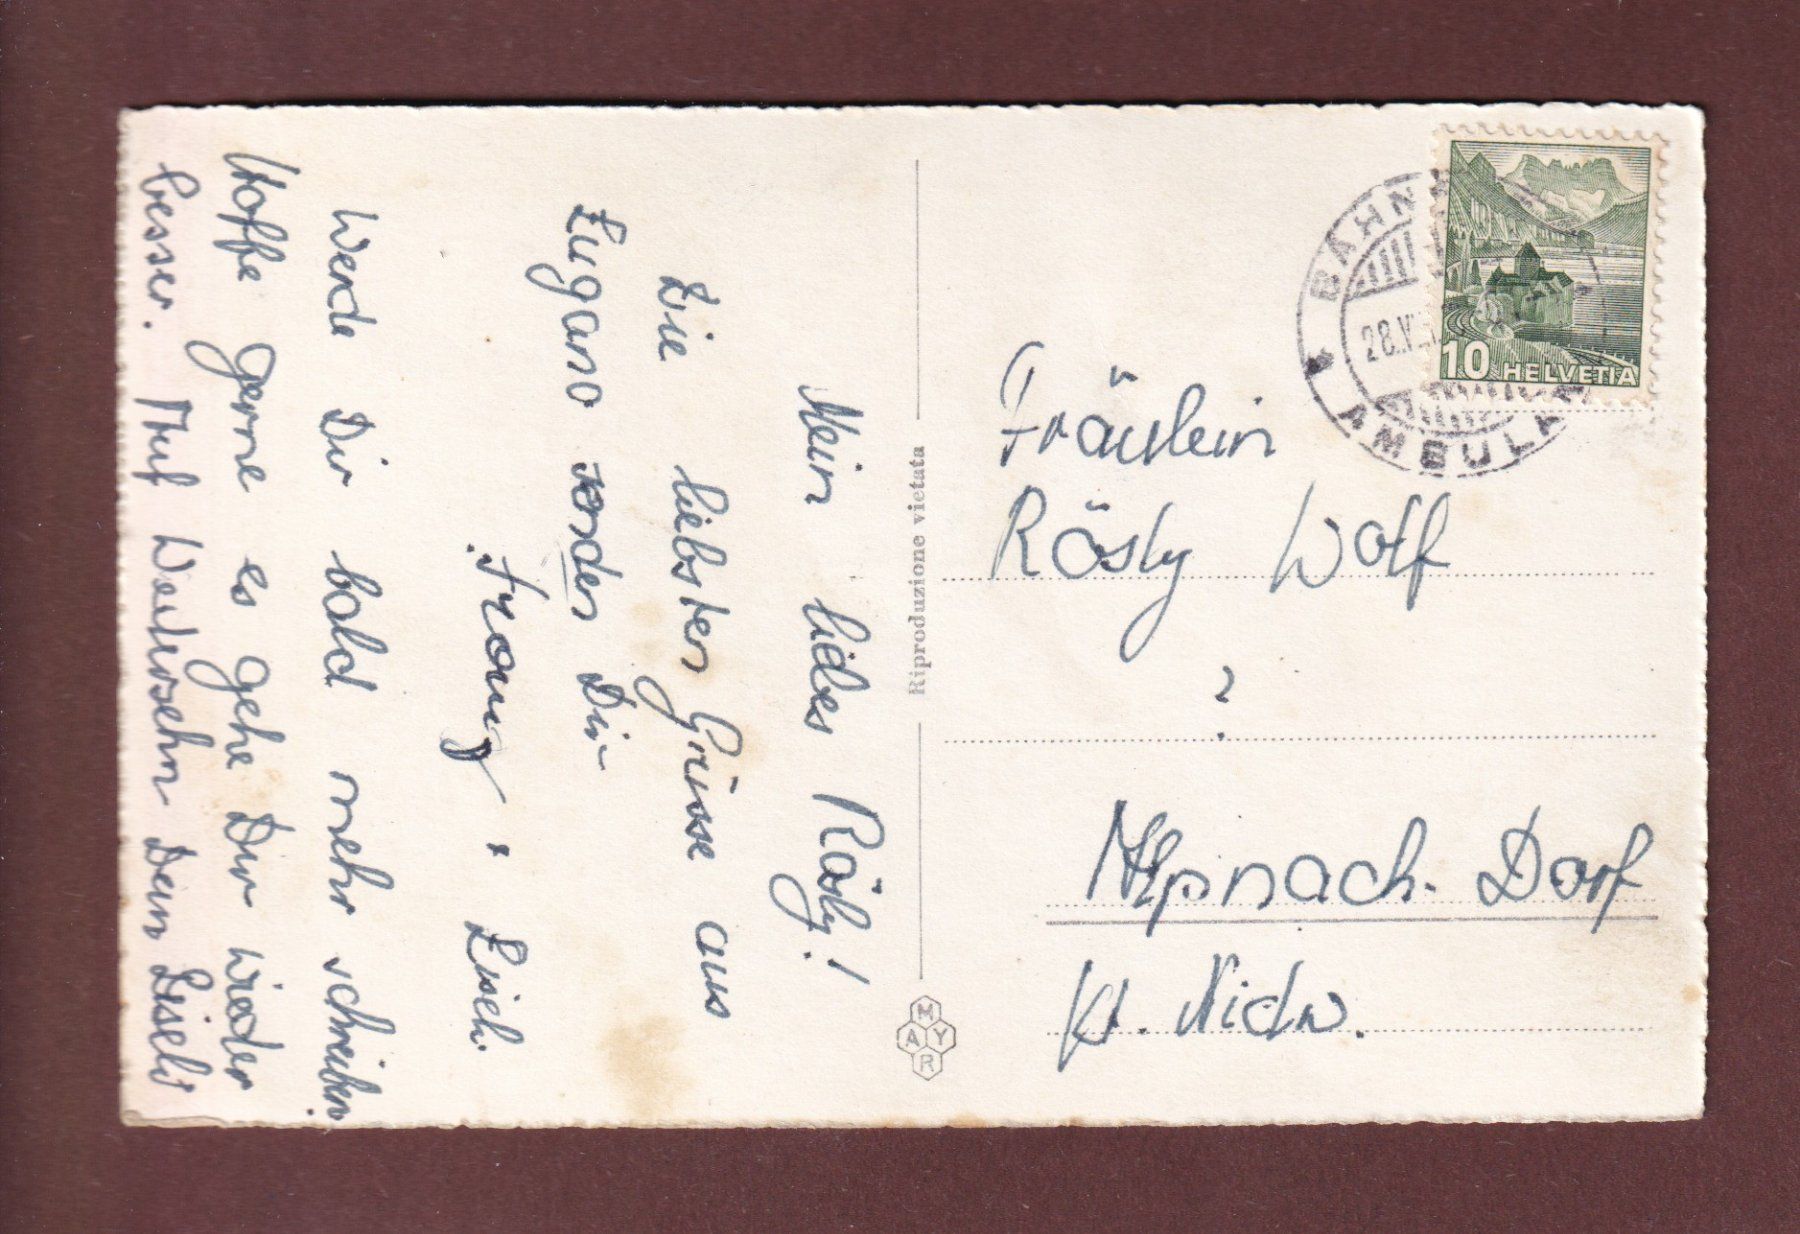 Mein liebes Rösly!
Die liebsten Grüsse aus
Lugano senden Dir
Franz + Liseli.
Werde Dir bald mehr schreiben.
Hoffe gerne es gehe Dir wieder
besser. Auf Weitersehn Dein Liseli
Riproduzione vietata
MAYR
BAHN
28.VI
AMBULA
10 HELVETIA
Fräulein
Rösly Wolf
?
Alpnach-Dorf
Kt. Nidw.